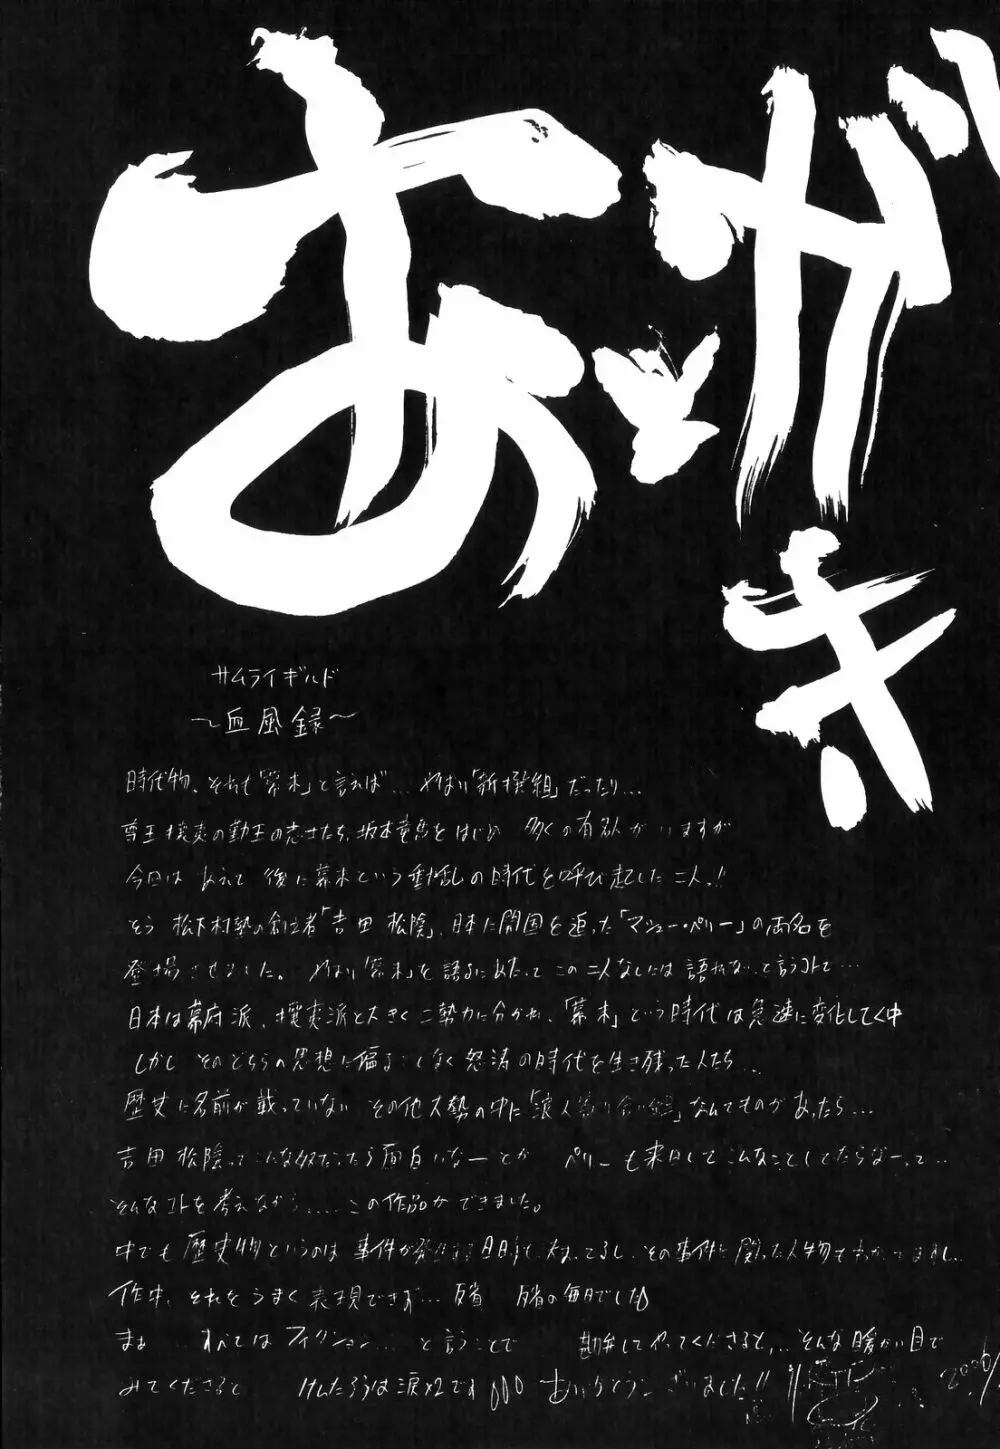 あとがき
サムライギルド
～血風録～
時代物、それも「幕末」と言えば…やはり「新撰組」だったり…
尊王攘夷の勤王の志士たち、坂本竜馬をはじめ 多くの有志がいますが
今回は あえて 後に幕末という動乱の時代を呼び起した二人っ!!
そう 松下村塾の創立者「吉田 松陰」、日本に開国を迫った「マシュー・ペリー」の両名を
登場させました。 やはり「幕末」を語るにあたって この二人なしには語れないと言うコトで…
日本は幕府派、攘夷派と大きく二勢力に分かれ、「幕末」という時代は急速に変化してく中
しかし そのどちらの思想に偏る しなく 怒涛の時代を生き残った人たち…
歴史に名前が載っていない その他大勢の中に「浪人 組」なんてものがあったら…
吉田 松陰ってこんな奴だったら面白いなーとか ペリーも来日してこんなことしてたらなーって…
そんなコトを考えながら....この作品ができました。
中でも歴史物というのは 事件が 日時も 決まってるし、その事件に関った人物も
作中、それをうまく表現できず… 反省 反省の毎日でした
まぁ… すべてはフィクション…と言うことで 勘弁してやってくださると… そんな暖かい目で
みてくださると けんたろうは涙×2です ありがとうございました!!